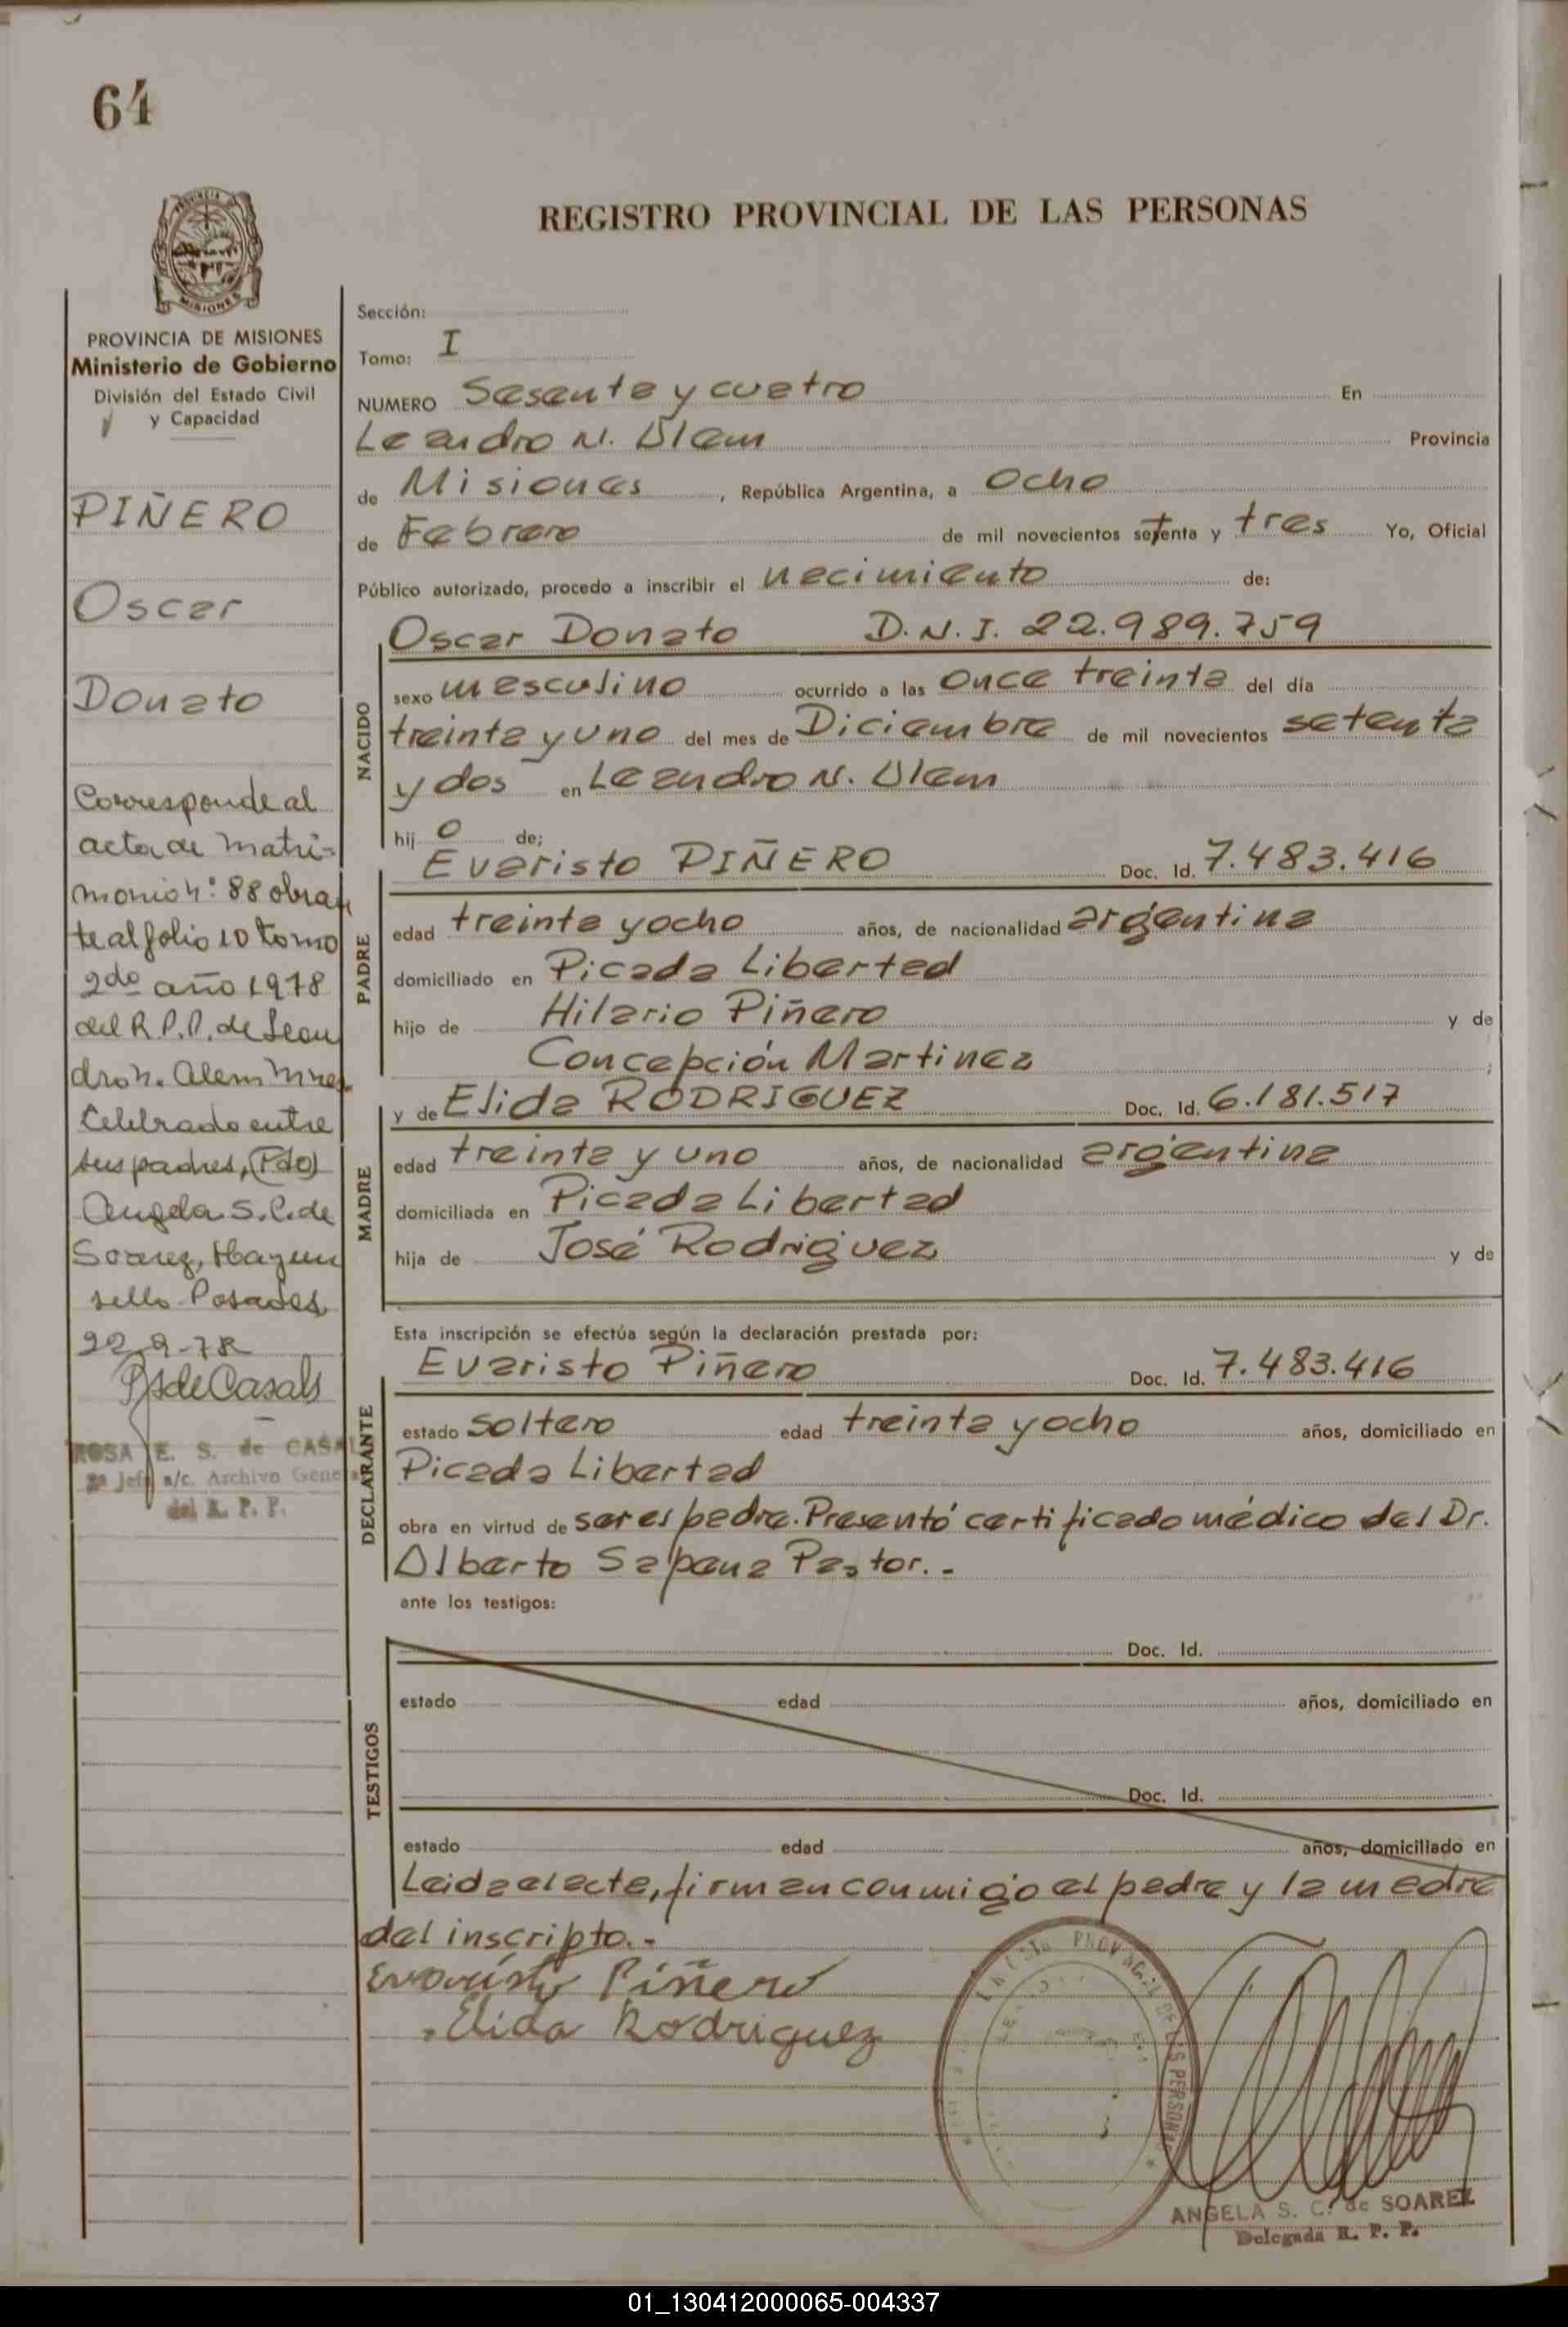 64
REGISTRO PROVINCIAL DE LAS PERSONAS
MISIONES
PROVINCIA DE MISIONES
Ministerio de Gobierno
División del Estado Civil
y Capacidad
PIÑERO
Oscar
Donato
Corresponde al
acta de matri-
monio n: 88 obran
te al folio 10 tomo
2do año 1978
del R.P.P. de Lean
dro n. Alem Mnes.
Celebrado entre
sus padres, (Fdo)
Angela S. C. de
Soarez, Hay un
sello Posadas
22-9-78
de Casals
ROSA E. S. de CASAL
2ª Jefe a/c. Archivo Gene
del R. P. P.
Sección:
Tomo: I
NUMERO Sesenta y cuatro En
Leandro N. Alem Provincia
de Misiones , República Argentina, a Ocho
de Febrero de mil novecientos setenta y tres Yo, Oficial
Público autorizado, procedo a inscribir el nacimiento de:
NACIDO
Oscar Donato D.N.I. 22.989.759
sexo masculino ocurrido a las once treinta del día
treinta y uno del mes de Diciembre de mil novecientos setenta
y dos en Leandro N. Alem
hij o de;
PADRE
Evaristo PIÑERO Doc. Id. 7.483.416
edad treinta y ocho años, de nacionalidad argentina
domiciliado en Picada Libertad
hijo de Hilario Piñero y de
Concepción Martinez ;
MADRE
y de Elida RODRIGUEZ Doc. Id. 6.181.517
edad treinta y uno años, de nacionalidad argentina
domiciliada en Picada Libertad
hija de José Rodriguez y de
Esta inscripción se efectúa según la declaración prestada por:
DECLARANTE
Evaristo Piñero Doc. Id. 7.483.416
estado soltero edad treinta y ocho años, domiciliado en
Picada Libertad
obra en virtud de ser el padre. Presentó certificado médico del Dr.
Alberto Sapena Pastor. -
ante los testigos:
TESTIGOS
Doc. Id.
estado edad años, domiciliado en
Doc. Id.
estado edad años, domiciliado en
Leida el acta, firman conmigo el padre y la madre
del inscripto. -
Evaristo Piñero
Elida Rodriguez
DE LAS PERSONAS
ANGELA S. C. de SOAREZ
Delegada R. P. P.
01_130412000065-004337